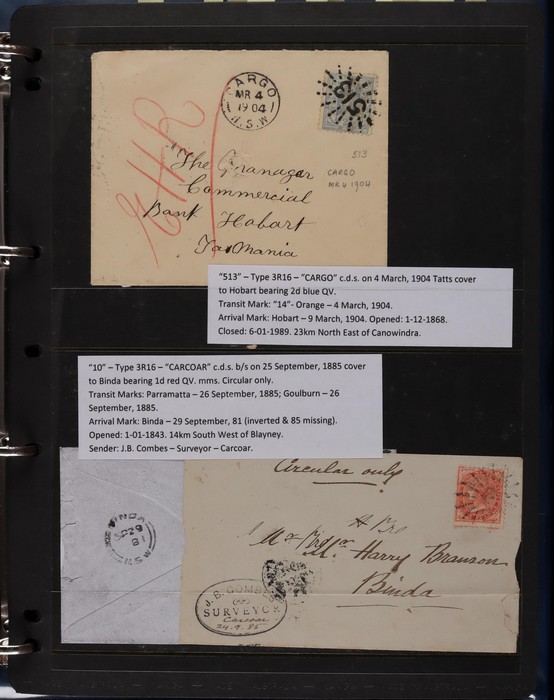 CARGO
MR 4
1904
N.S.W
513
EHR
513
CARGO
MR 4 1904
The Manager
Commercial
Bank Hobart
Tasmania
"513" – Type 3R16 – "CARGO" c.d.s. on 4 March, 1904 Tatts cover
to Hobart bearing 2d blue QV.
Transit Mark: "14"- Orange – 4 March, 1904.
Arrival Mark: Hobart – 9 March, 1904. Opened: 1-12-1868.
Closed: 6-01-1989. 23km North East of Canowindra.
"10" – Type 3R16 – "CARCOAR" c.d.s. b/s on 25 September, 1885 cover
to Binda bearing 1d red QV. mms. Circular only.
Transit Marks: Parramatta – 26 September, 1885; Goulburn – 26
September, 1885.
Arrival Mark: Binda – 29 September, 81 (inverted & 85 missing).
Opened: 1-01-1843. 14km South West of Blayney.
Sender: J.B. Combes – Surveyor – Carcoar.
Circular only
BINDA
29
81
N.S.W
Mr Harry Branson
Binda
J.B. COMBES
SURVEYOR
Carcoar
24.9.85